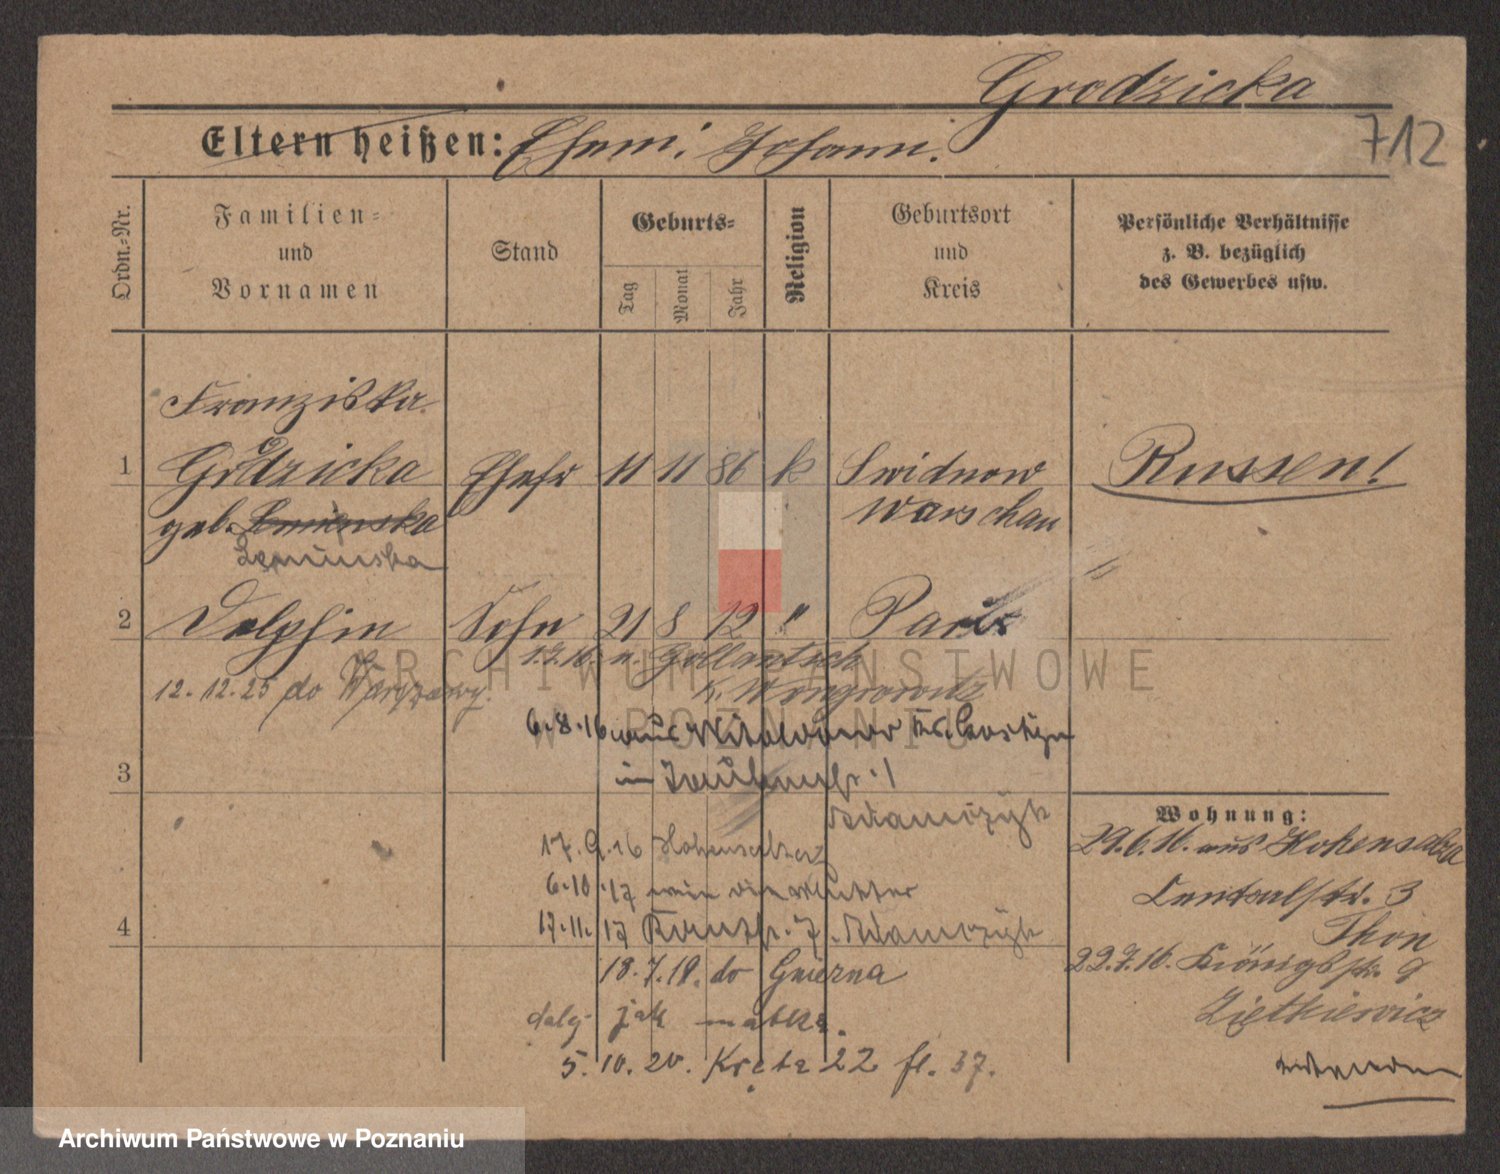 Grodzicka
712
Eltern heißen: Ehem. Johann.
Ordn.=Nr.
Familien=
und
Vornamen
Stand
Geburts=
Tag
Monat
Jahr
Religion
Geburtsort
und
Kreis
Persönliche Verhältnisse
z. B. bezüglich
des Gewerbes usw.
Franziska
1 Grodzicka Ehefr 11 11 86 k Swidnow Russen!
geb. Warschau
2 Dolphin Sohn 21 8 12 " Paris
1.7.16. n. Gollantsch
12.12.25 do Warszawy. Kr. Wongrowitz
6.8.16 aus Kr. Gostyn
in
3
Adamczyk
Wohnung:
29.6.16. aus Hohensalza
17.9.16 Hohensalza
6.10.17 wie die Mutter
Centralstr. 3
Thon
4 17.11.17 7. Adamczyk
22.7.16. Königstr. 9
18.7.19. do Gniezna
Ziętkiewicz
dalej jak matka.
5.10.20. Kręta 22 fl. 37.
ARCHIWUM PAŃSTWOWE
W POZNANIU
Archiwum Państwowe w Poznaniu